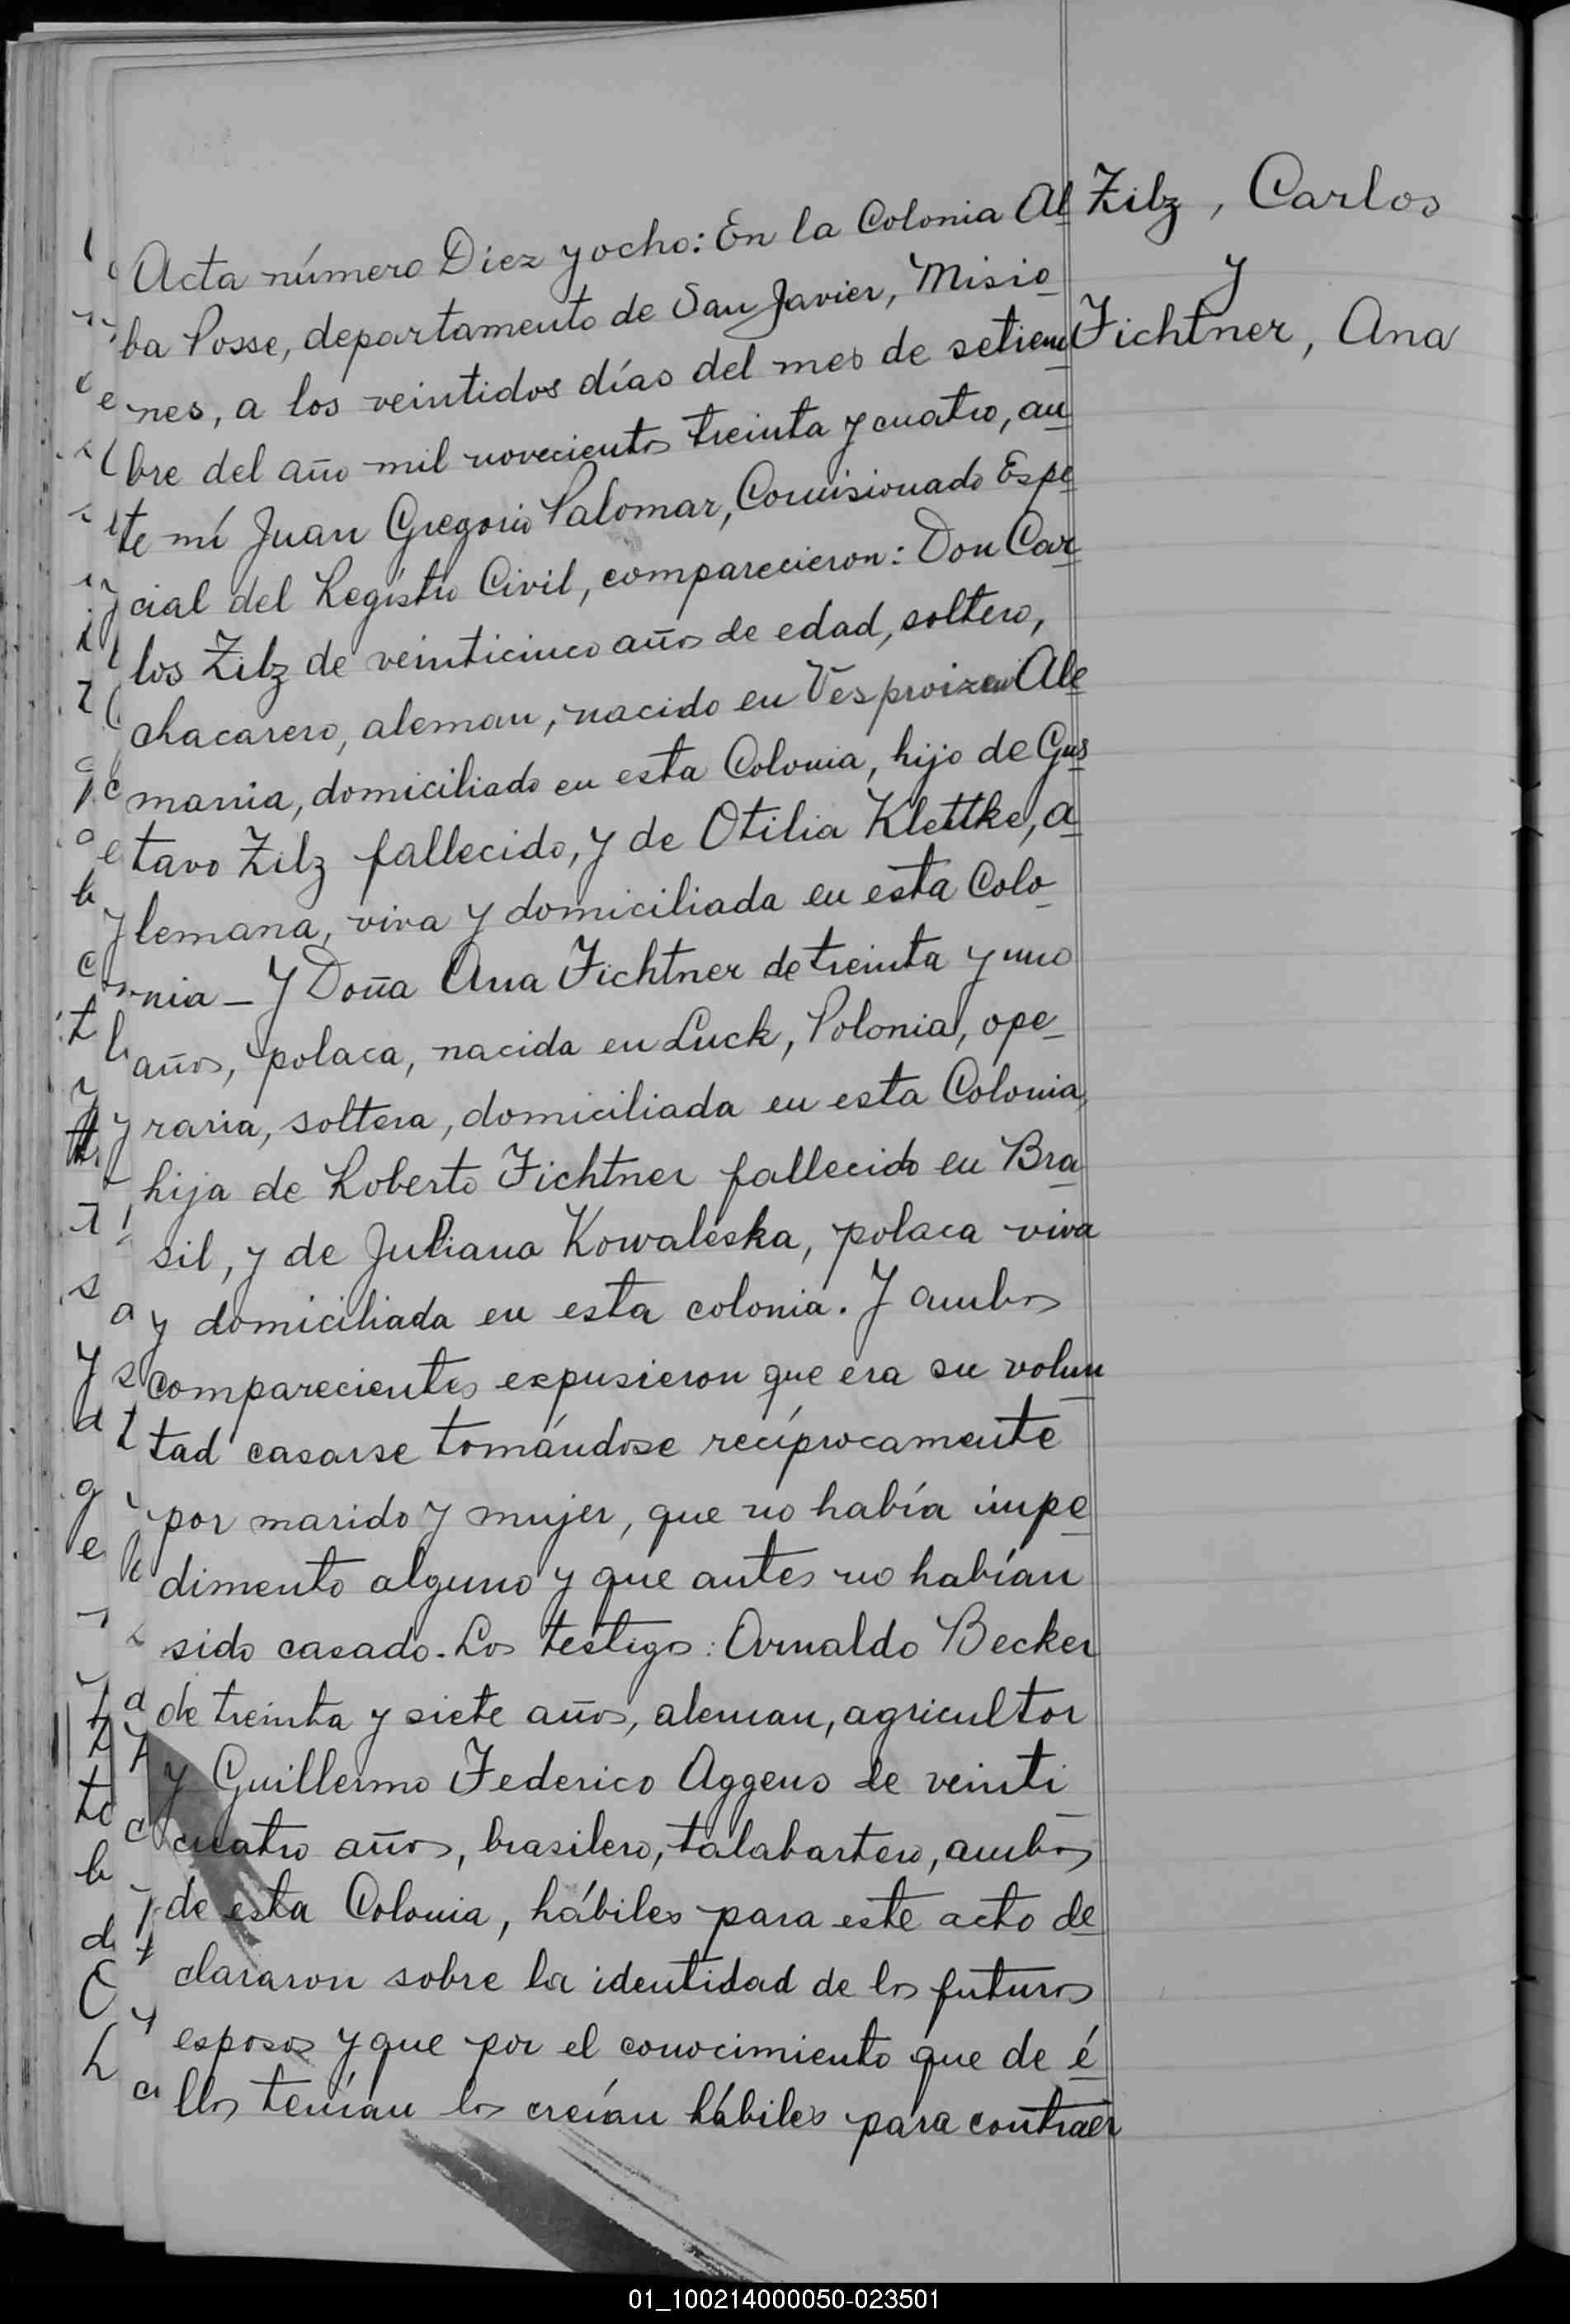 Zilz, Carlos
y
Fichtner, Ana
Acta número Diez y ocho: En la Colonia Al
ba Posse, departamento de San Javier, Misio
nes, a los veintidos días del mes de setiem
bre del año mil novecientos treinta y cuatro, an
te mí Juan Gregorio Palomar, Comisionado Espe
cial del Registro Civil, comparecieron: Don Car
los Zilz de veinticinco años de edad, soltero,
chacarero, aleman, nacido en Vesproizen Ale
mania, domiciliado en esta Colonia, hijo de Gus
tavo Zilz fallecido, y de Otilia Klettke, a
lemana, viva y domiciliada en esta Colo
nia - Y Doña Ana Fichtner de treinta y uno
años, polaca, nacida en Luck, Polonia, ope
raria, soltera, domiciliada en esta Colonia,
hija de Roberto Fichtner fallecido en Bra
sil, y de Juliana Kowaleska, polaca viva
y domiciliada en esta colonia. Y ambos
comparecientes expusieron que era su volun
tad casarse tomándose recíprocamente
por marido y mujer, que no había impe
dimento alguno y que antes no habían
sido casado. Los testigos: Arnaldo Becker
de treinta y siete años, aleman, agricultor
y Guillermo Federico Aggens de veinti
cuatro años, brasilero, talabartero, ambos
de esta Colonia, hábiles para este acto de
clararon sobre la identidad de los futuros
esposos y que por el conocimiento que de é
llos tenían los creían hábiles para contraer
01_100214000050-023501